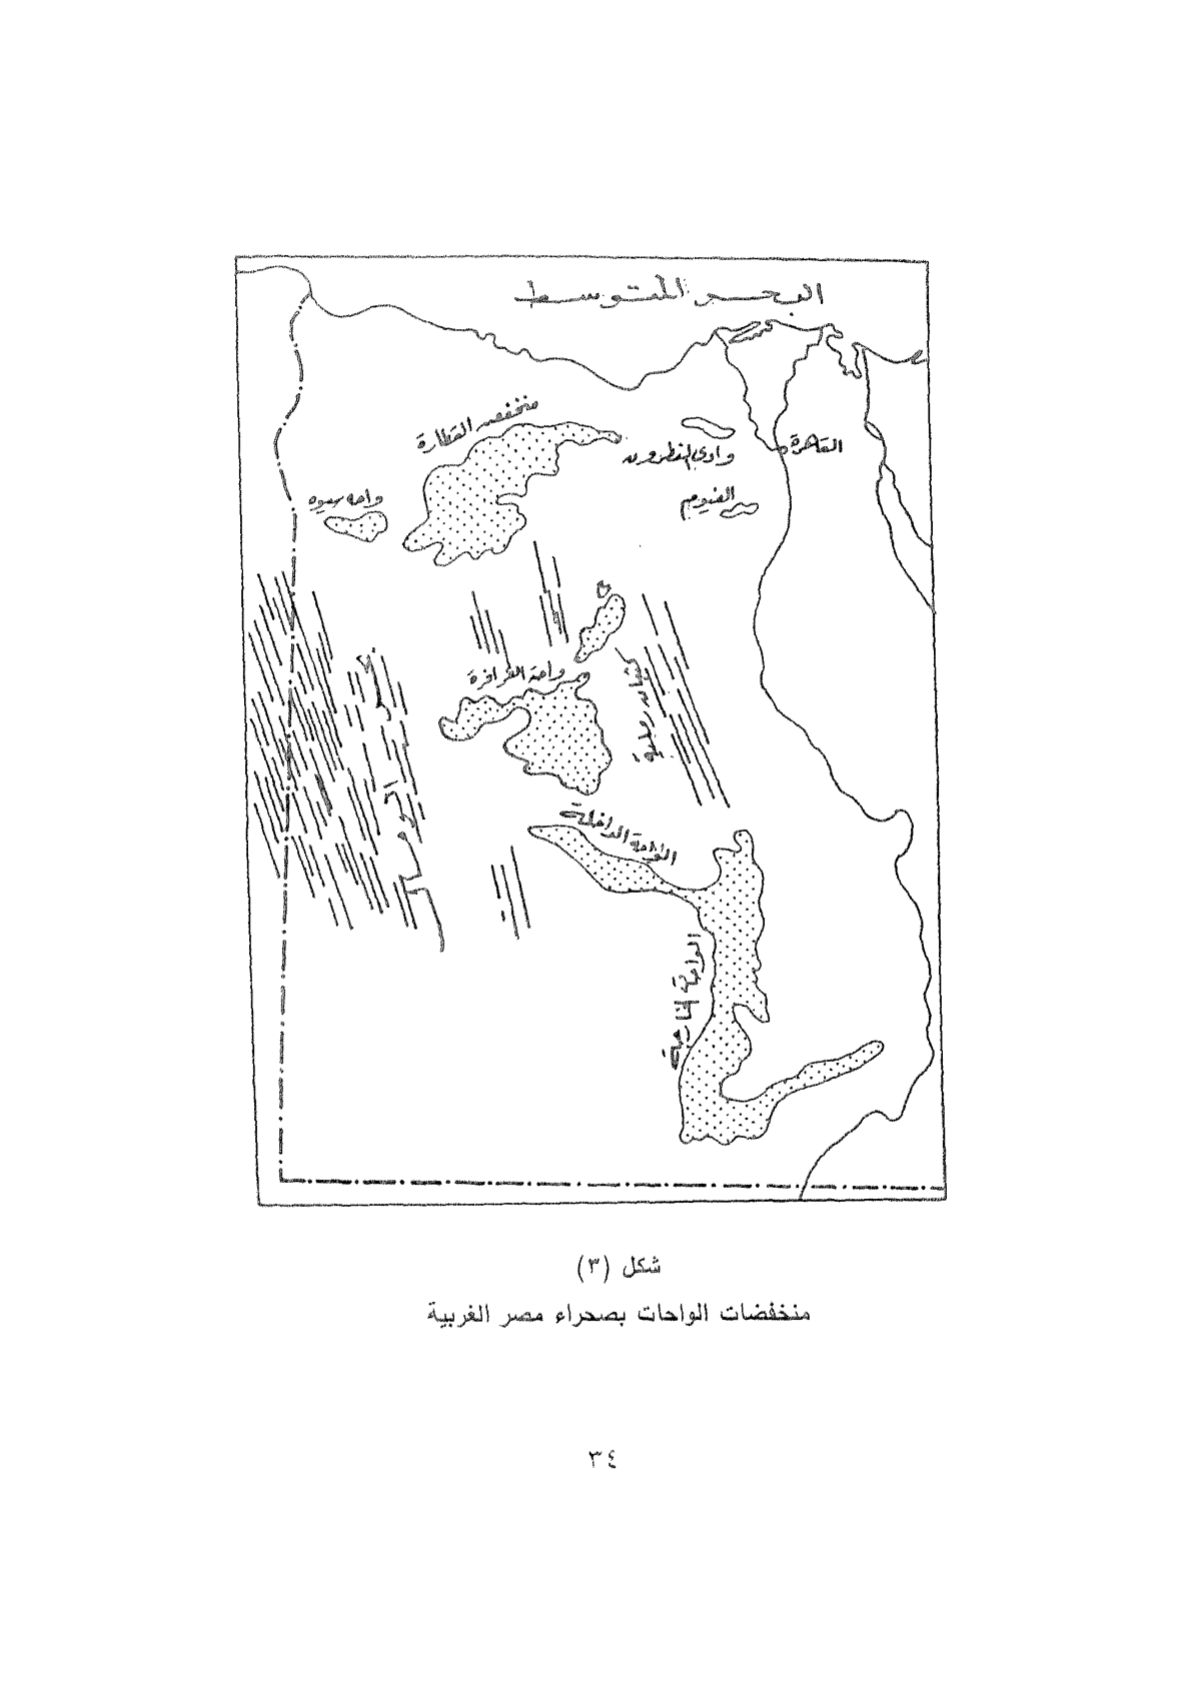 البحر المتوسط
منخفض القطارة
وادى النطرون
القاهرة
واحه سيوه
الفيوم
واحة الفرافرة
كثبان رملية
بحر الرمال
الواحة الداخلة
الواحة الخارجة
شكل (٣)
منخفضات الواحات بصحراء مصر الغربية
٣٤